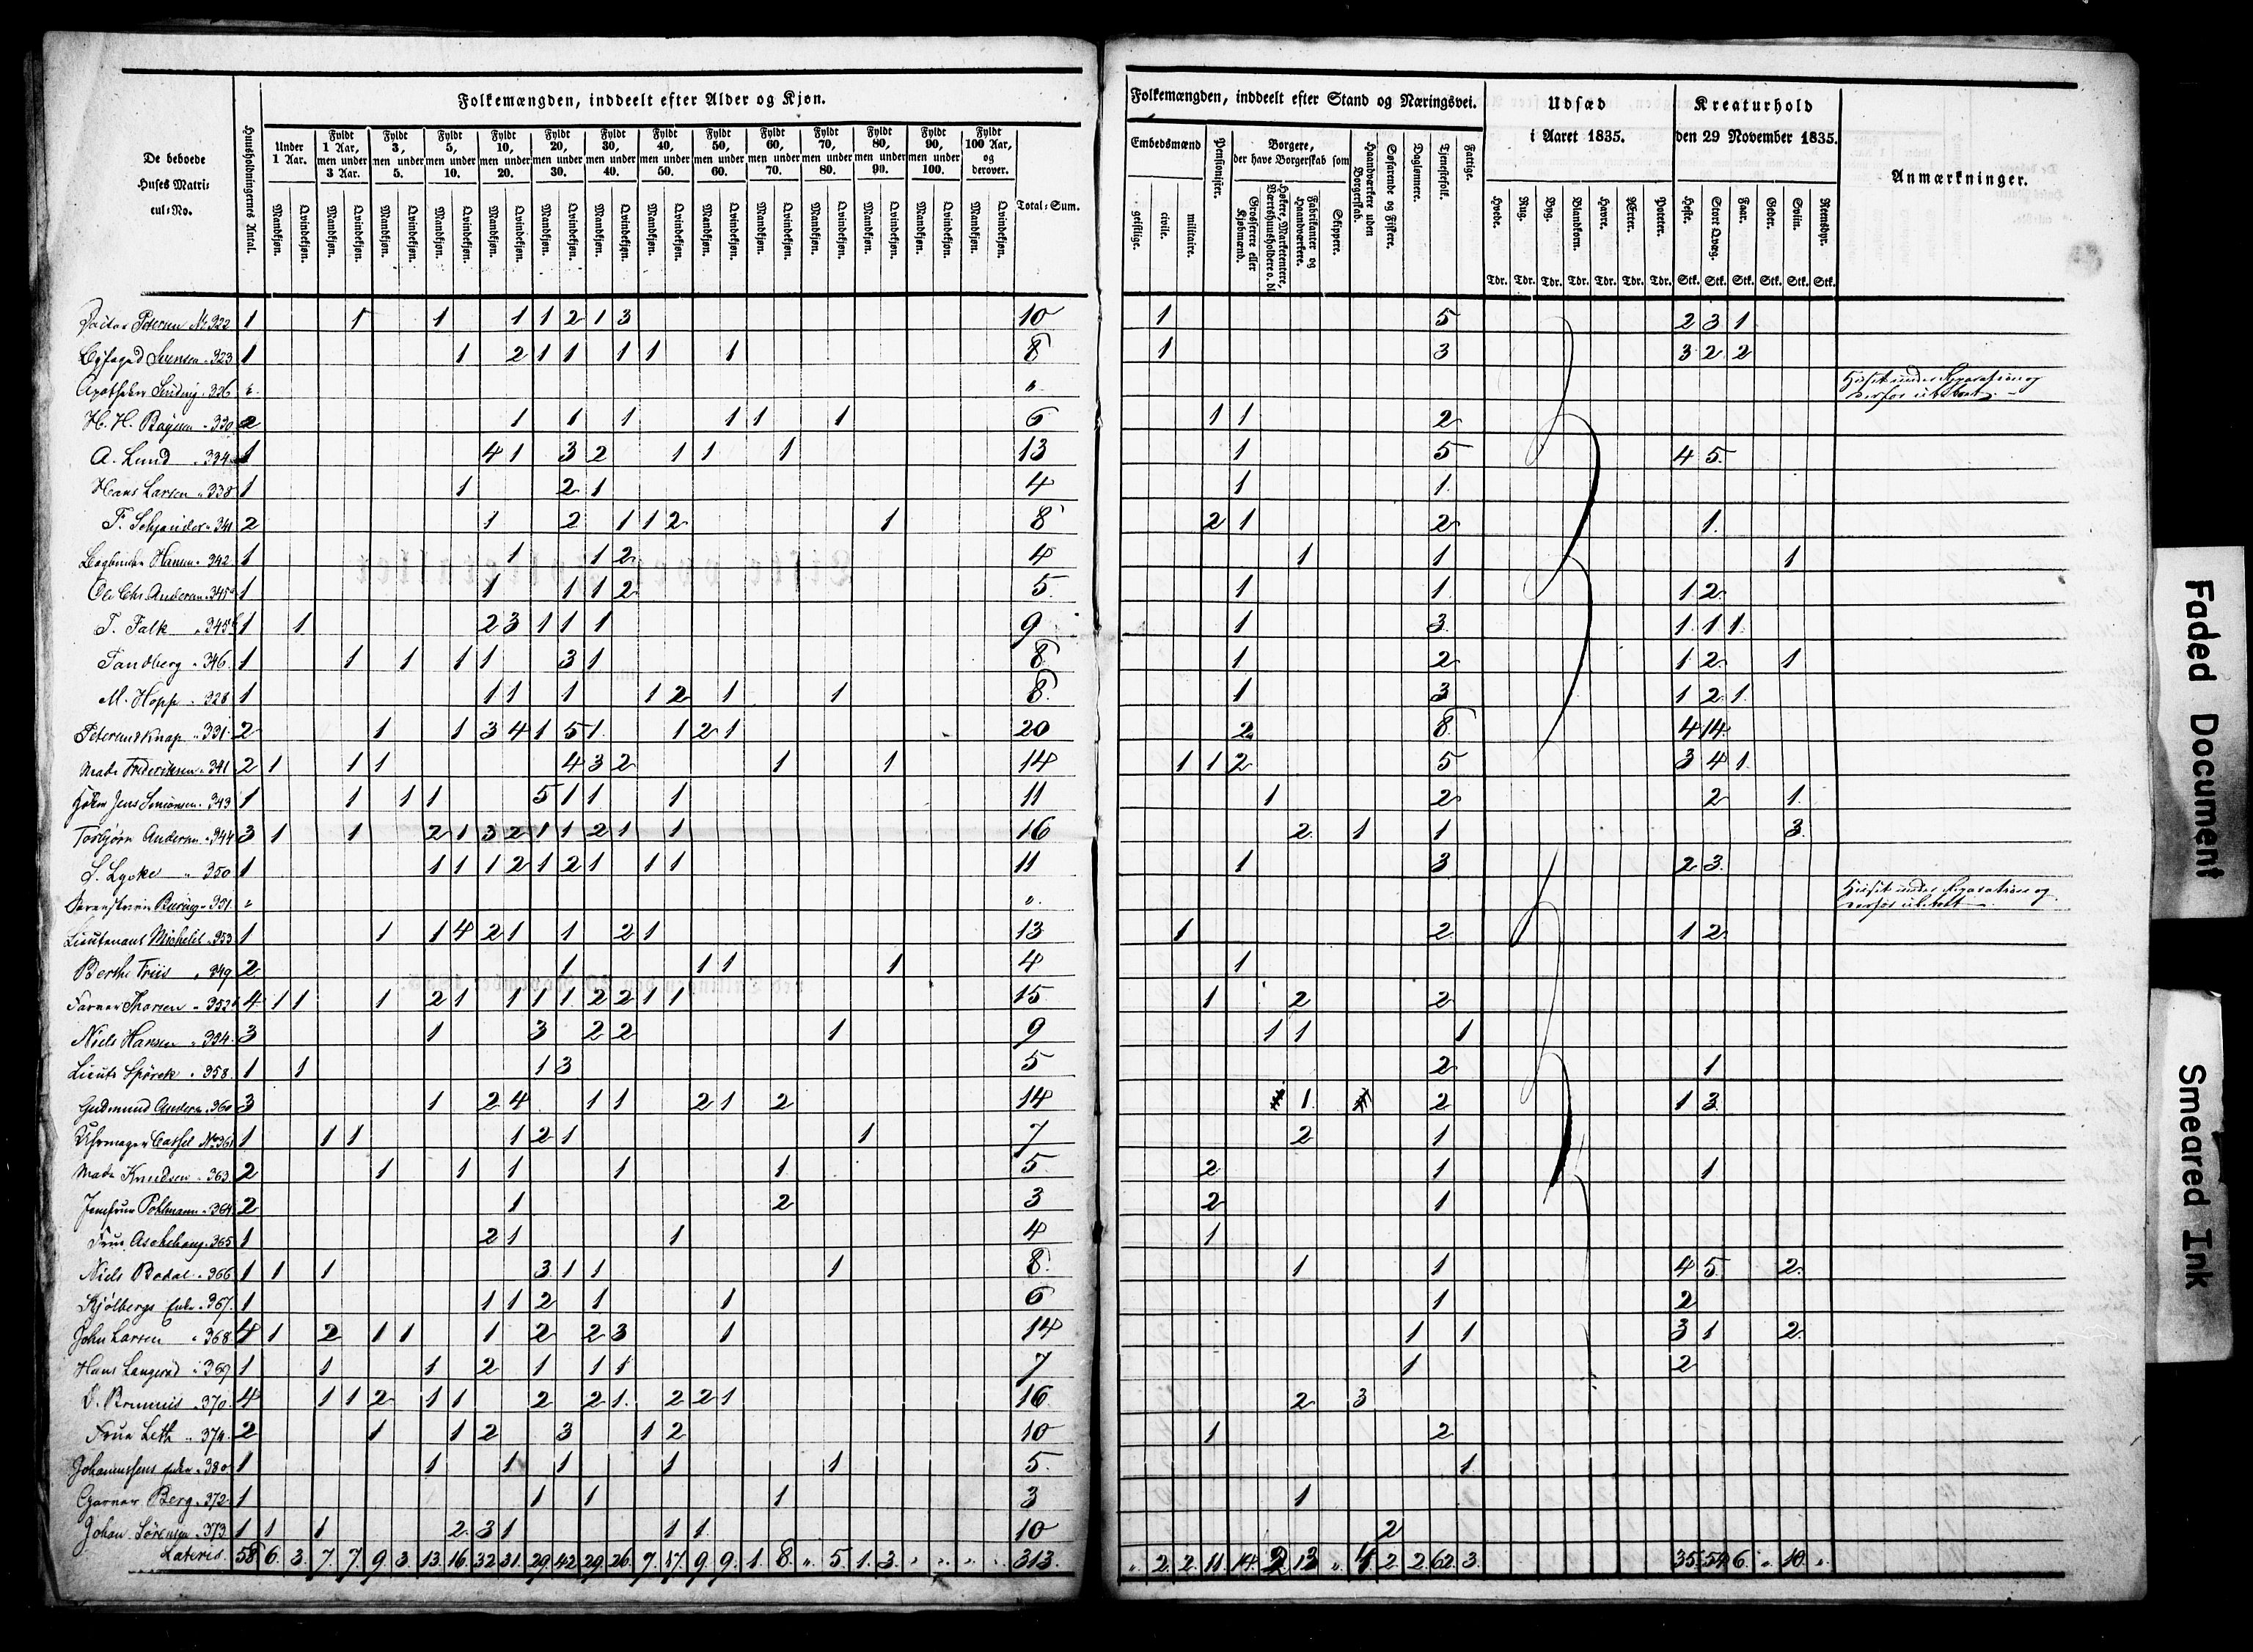 Folkemængden, inddeelt efter Alder og Kjøn.
De beboede Huses Matri-cul-No.
Huusholdningernes Antal.
Under 1 Aar. Fyldt 1 Aar, men under 3 Aar. Fyldt 3, men under 5. Fyldt 5, men under 10. Fyldt 10, men under 20. Fyldt 20, men under 30. Fyldt 30, men under 40. Fyldt 40, men under 50. Fyldt 50, men under 60. Fyldt 60, men under 70. Fyldt 70, men under 80. Fyldt 80, men under 90. Fyldt 90, men under 100. Fyldt 100 Aar, og derover. Total-Sum.
Mandkjøn. Qvindekjøn. Mandkjøn. Qvindekjøn. Mandkjøn. Qvindekjøn. Mandkjøn. Qvindekjøn. Mandkjøn. Qvindekjøn. Mandkjøn. Qvindekjøn. Mandkjøn. Qvindekjøn. Mandkjøn. Qvindekjøn. Mandkjøn. Qvindekjøn. Mandkjøn. Qvindekjøn. Mandkjøn. Qvindekjøn. Mandkjøn. Qvindekjøn. Mandkjøn. Qvindekjøn. Mandkjøn. Qvindekjøn.
Folkemængden, inddeelt efter Stand og Næringsvei. Udsæd i Aaret 1835. Kreaturhold den 29 November 1835. Anmærkninger.
Embedsmænd geistlige. civile. militaire. Pensionister. Borgere, der have Borgerskab som Grosserere eller Kjøbmænd. Høkere, Marketentere, Værtshuusholdere o. dl. Fabrikanter og Haandværkere. Skippere. Haandværkere uden Borgerskab. Søfarende og Fiskere. Daglønnere. Tjenestefolk. Fattige.
Hvede. Rug. Byg. Blandkorn. Havre. Ærter. Poteter. Heste. Stort Qvæg. Faar. Geder. Sviin. Rensdyr.
Tdr. Tdr. Tdr. Tdr. Tdr. Tdr. Tdr. Stk. Stk. Stk. Stk. Stk. Stk.
Petersen No 322 1 1 1 1 1 2 1 3 10 1 5 2 3 1
Byfoged Sørensen " 323 1 1 2 1 1 1 1 1 8 1 3 3 2 2
Apotheker " 326 " " Huset under Reparation og derfor ubeboet.
H. H. " 330 2 1 1 1 1 1 1 6 1 1 2
A. Lund " 334 1 4 1 3 2 1 1 1 13 1 5 4 5
Hans Larsen " 338 1 1 2 1 4 1 1
F. " 341 2 1 2 1 1 2 1 8 2 1 2 1
Hansen " 342 1 1 1 2 4 1 1 1
Ole Chr. Andersen " 345 1 1 1 1 2 5 1 1 1 2
T. Falk " 345 1 1 2 3 1 1 1 9 1 3 1 1 1
Tandberg " 346 1 1 1 1 1 3 1 8 1 2 1 2 1
M. Hopp " 328 1 1 1 1 1 2 1 1 8 1 3 1 2 1
331 2 1 1 3 4 1 5 1 1 2 1 20 2 8 4 14
Frederiksen " 341 2 1 1 1 4 3 2 1 1 14 1 1 2 5 3 4 1
Jens " 343 1 1 1 1 5 1 1 1 11 1 2 2 1
Torbjørn Andersen " 344 3 1 1 2 1 3 2 1 1 2 1 1 16 2 1 1 3
S. Lycke " 350 1 1 1 1 2 1 2 1 1 1 11 1 3 2 3
" " Huset under Reparation og derfor ubeboet.
Lieutenant Michelet " 353 1 1 1 4 2 1 1 2 1 13 1 2 1 2
Berthe Friis " 349 2 1 1 1 1 4 1
Thorsen " 352 4 1 1 1 2 1 1 1 1 2 2 1 1 15 1 2 2
Niels Hansen " 3 1 3 2 2 1 9 1 1 1
Lieutn Spörck " 358 1 1 1 3 5 2 1
Gudmund Andersn " 360 3 1 2 4 1 1 2 1 2 14 1 2 1 3
Uhrmager Cassel No 361 1 1 1 1 2 1 1 7 2 1
Knudsen " 363 2 1 1 1 1 1 5 2 1 1
Jomfrue Pohlmann " 364 2 1 2 3 2 1
Frue Aschehoug " 365 1 2 1 1 4 1
Niels Bodal " 366 1 1 1 3 1 1 1 8 1 1 4 5 2
Kjölbergs Enke " 367 1 1 1 2 1 1 6 1 2
John Larsen " 368 4 1 2 1 1 1 2 2 3 1 14 1 1 3 1 2
Hans Langerød " 369 1 1 1 2 1 1 1 7 1 2
" 370 4 1 1 2 1 1 2 2 1 2 2 1 16 2 3
Frue Leth " 374 2 1 1 2 3 1 2 10 1 2
Johannesens Enke " 380 1 1 1 1 1 1 5 1
Berg " 372 1 1 1 1 3 1
Johan Sörensen " 373 1 1 1 2 3 1 1 1 10 2
Lateris 58 6 3 7 7 9 3 13 16 32 31 29 42 29 26 7 17 9 9 1 8 " 5 1 3 " " " " 313 " 2 2 11 14 2 13 " 4 2 2 62 3 35 54 6 " 10 "
Faded Document
Smeared Ink